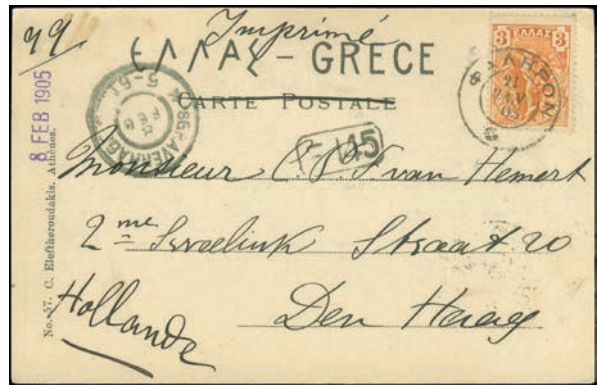 49
Imprimé
ΕΛΛΑΣ – GRECE
CARTE POSTALE
ΕΛΛΑΣ
3
3
ΣΚΗΡΟΝ
21
8 FEB 1905
'S GRAVENHAGE
45
Monsieur C. P. K. van Hemert
2me Sweelink Straat 20
Den Haag
Hollande
No. 57. C. Eleftheroudakis, Athènes.